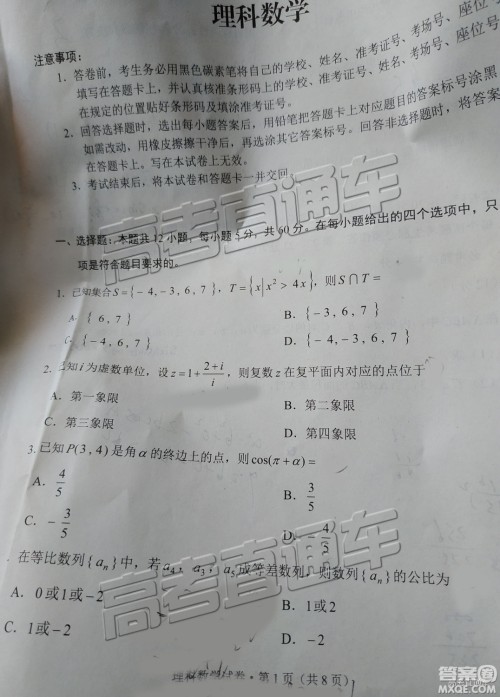 理科数学
注意事项：
1. 答卷前，考生务必用黑色碳素笔将自己的学校、姓名、准考证号、考场号、座位号
填写在答题卡上，并认真核准条形码上的学校、姓名、准考证号、考场号、座位号
在规定的位置贴好条形码及填涂准考证号。
2. 回答选择题时，选出每小题答案后，用铅笔把答题卡上对应题目的答案标号涂黑
如需改动，用橡皮擦擦干净后，再选涂其它答案标号。回答非选择题时，将答案
在答题卡上。写在本试卷上无效。
3. 考试结束后，将本试卷和答题卡一并交回。
高考直通车
一、选择题：本题共12小题，每小题5分，共60分。在每小题给出的四个选项中，只
项是符合题目要求的。
1. 已知集合 S={-4，-3，6，7}，T={x|x²>4x}，则 S∩T=
A. {6，7}
B. {-3，6，7}
C. {-4，6，7}
D. {-4，-3，6，7}
2. 已知 i 为虚数单位，设 z=1+(2+i)/i，则复数 z 在复平面内对应的点位于
A. 第一象限
B. 第二象限
C. 第三象限
D. 第四象限
3. 已知 P(3，4) 是角 α 的终边上的点，则 cos(π+α)=
A. 4/5
B. 3/5
C. -3/5
D. -4/5
在等比数列{aₙ}中，若 a₄，a₃，a₅ 成等差数列，则数列{aₙ}的公比为
A. 0或1或-2
B. 1或2
C. 1或-2
D.
高考直通车
·第1页（共8页）
答案圈